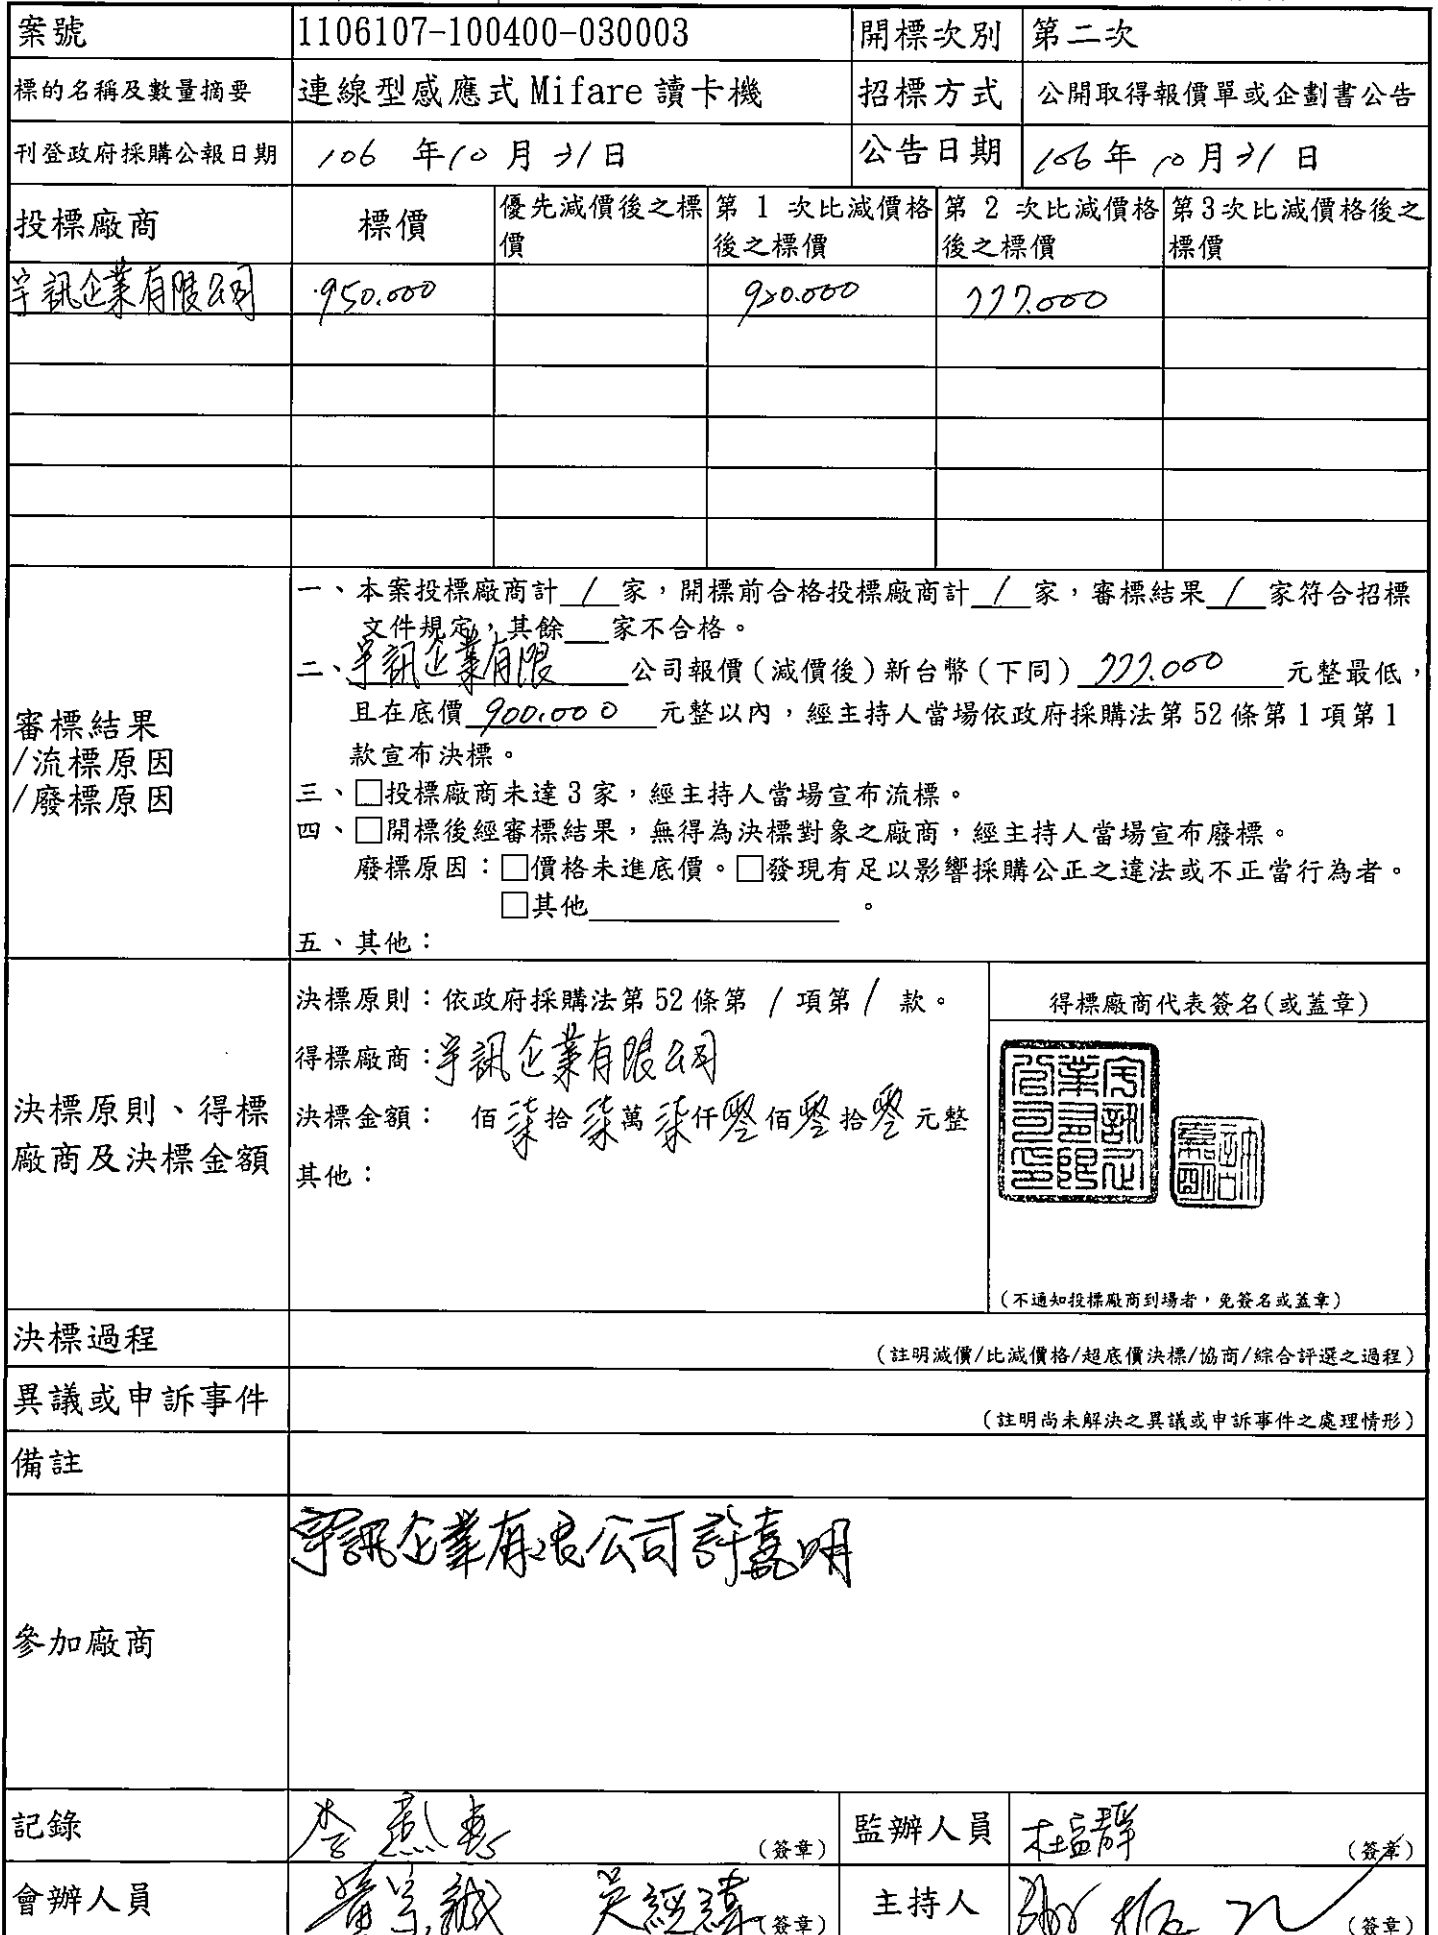 案號 1106107-100400-030003 開標次別 第二次
標的名稱及數量摘要 連線型感應式 Mifare 讀卡機 招標方式 公開取得報價單或企劃書公告
刊登政府採購公報日期 106 年 10 月 31 日 公告日期 106 年 10 月 31 日
投標廠商 標價 優先減價後之標價 第 1 次比減價格後之標價 第 2 次比減價格後之標價 第3次比減價格後之標價
宇訊企業有限公司 950.000 920.000 777.000
審標結果
/流標原因
/廢標原因
一、本案投標廠商計 1 家，開標前合格投標廠商計 1 家，審標結果 1 家符合招標
文件規定，其餘___家不合格。
二、宇訊企業有限 公司報價(減價後)新台幣(下同) 777.000 元整最低，
且在底價 900.000 元整以內，經主持人當場依政府採購法第 52 條第 1 項第 1
款宣布決標。
三、□投標廠商未達 3 家，經主持人當場宣布流標。
四、□開標後經審標結果，無得為決標對象之廠商，經主持人當場宣布廢標。
廢標原因：□價格未進底價。□發現有足以影響採購公正之違法或不正當行為者。
□其他 。
五、其他：
決標原則、得標
廠商及決標金額
決標原則：依政府採購法第 52 條第 1 項第 1 款。
得標廠商：宇訊企業有限公司
決標金額： 佰柒拾柒萬柒仟零佰零拾零元整
其他：
得標廠商代表簽名(或蓋章)
宇訊企業有限公司印
(不通知投標廠商到場者，免簽名或蓋章)
決標過程 (註明減價/比減價格/超底價決標/協商/綜合評選之過程)
異議或申訴事件 (註明尚未解決之異議或申訴事件之處理情形)
備註
參加廠商 宇訊企業有限公司許嘉明
記錄 (簽章) 監辦人員 (簽章)
會辦人員 吳經緯 (簽章) 主持人 (簽章)